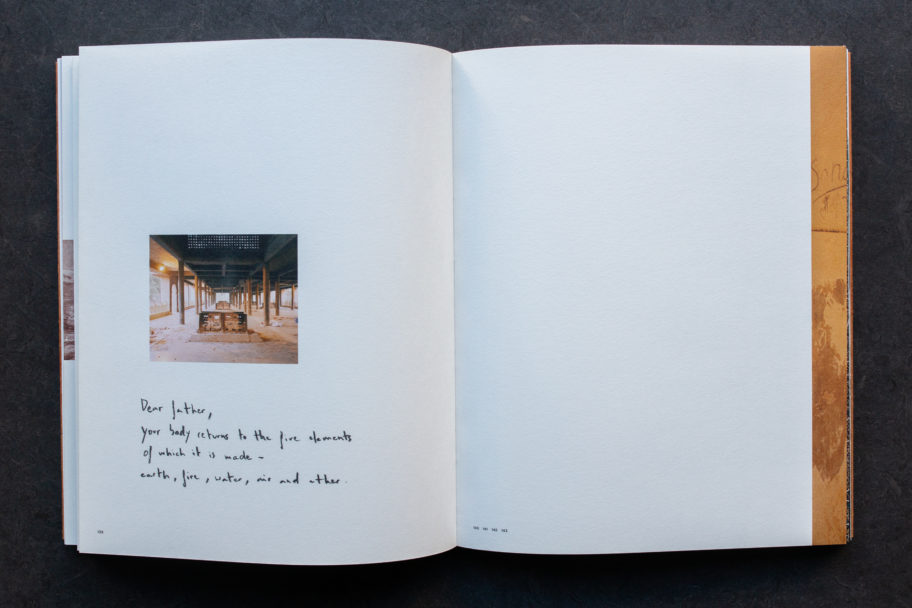 Dear father,
your body returns to the five elements
of which it is made –
earth, fire, water, air and ether.